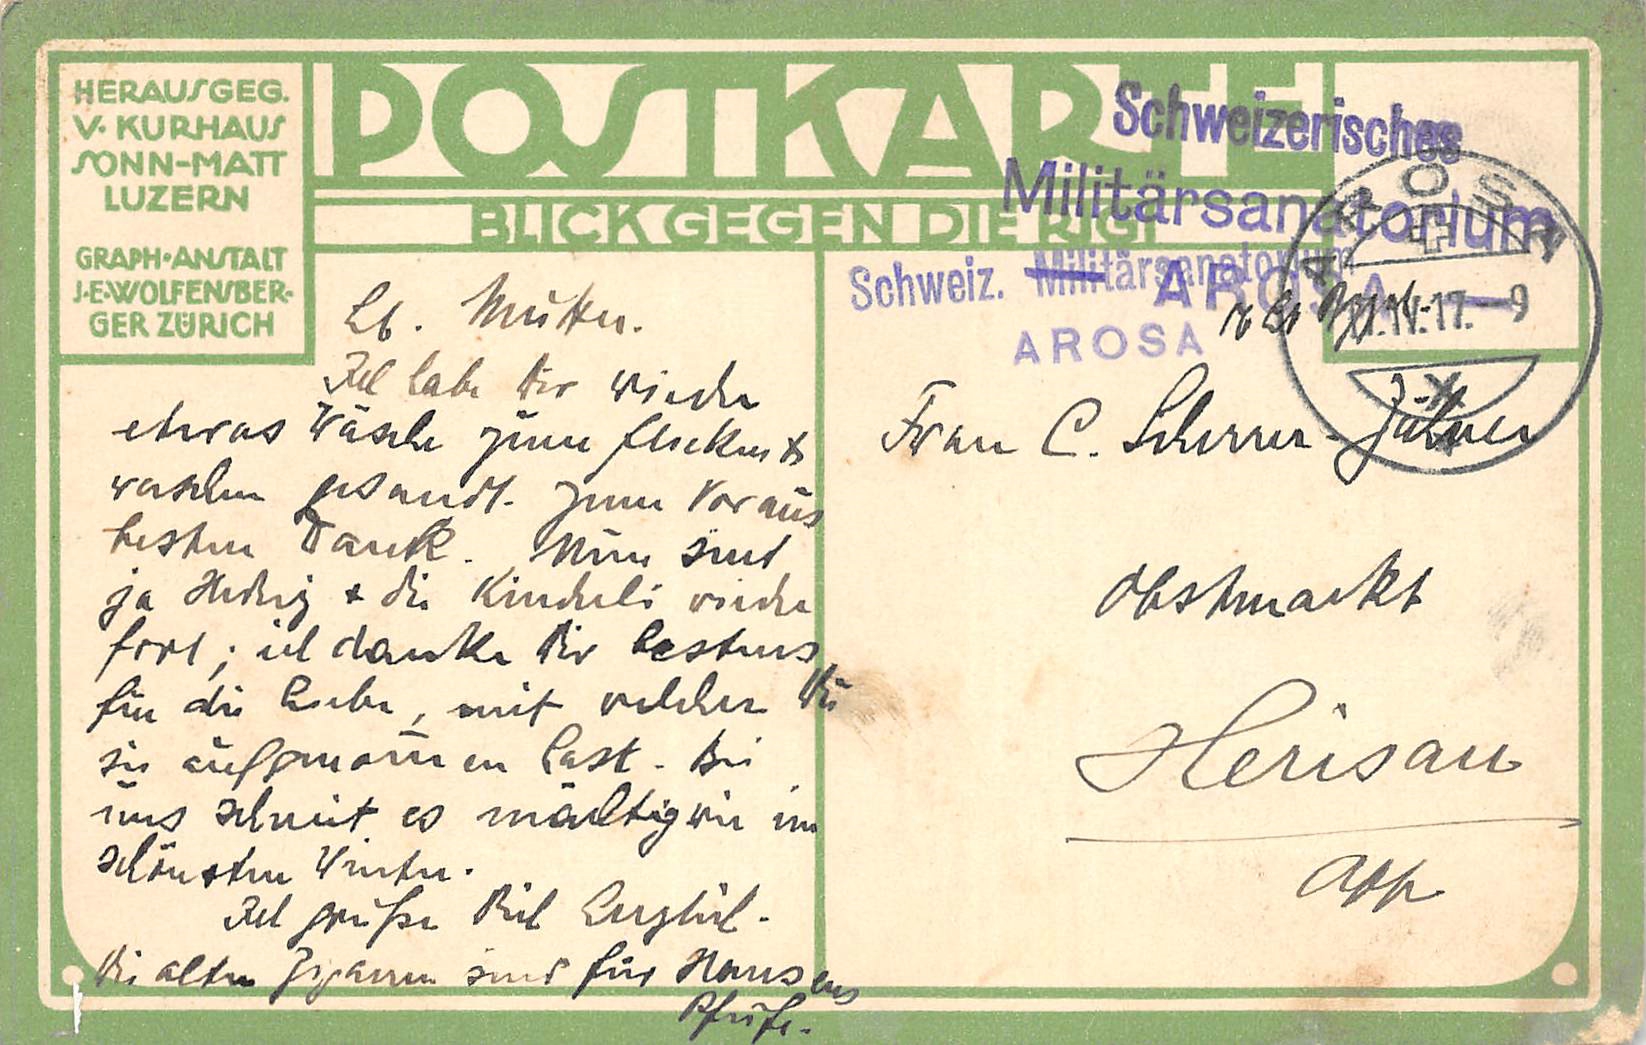 HERAUSGEG.
V. KURHAUS
SONN-MATT
LUZERN
GRAPH. ANSTALT
J. E. WOLFENSBER-
GER ZÜRICH
POSTKARTE
BLICK GEGEN DIE RIGI
Schweizerisches
Militärsanatorium
AROSA
Schweiz. Militärsanatorium
AROSA
AROSA
21.IV.17. - 9
Lb. Mutter.
Ich habe Dir wieder
etwas Wäsche zum flicken &
waschen gesandt. Zum Voraus
besten Dank. Nun sind
ja Hedwig & die Kinderli wieder
fort; ich danke Dir bestens
für die Liebe, mit welcher Du
sie aufgenommen hast. Bei
uns schneit es mächtig wie im
schönsten Winter.
Ich grüße Dich herzlich.
Die alten Zigarren sind für Hansens
Pfeife.
Frau C. Scherrer-
Obstmarkt
Herisau
App